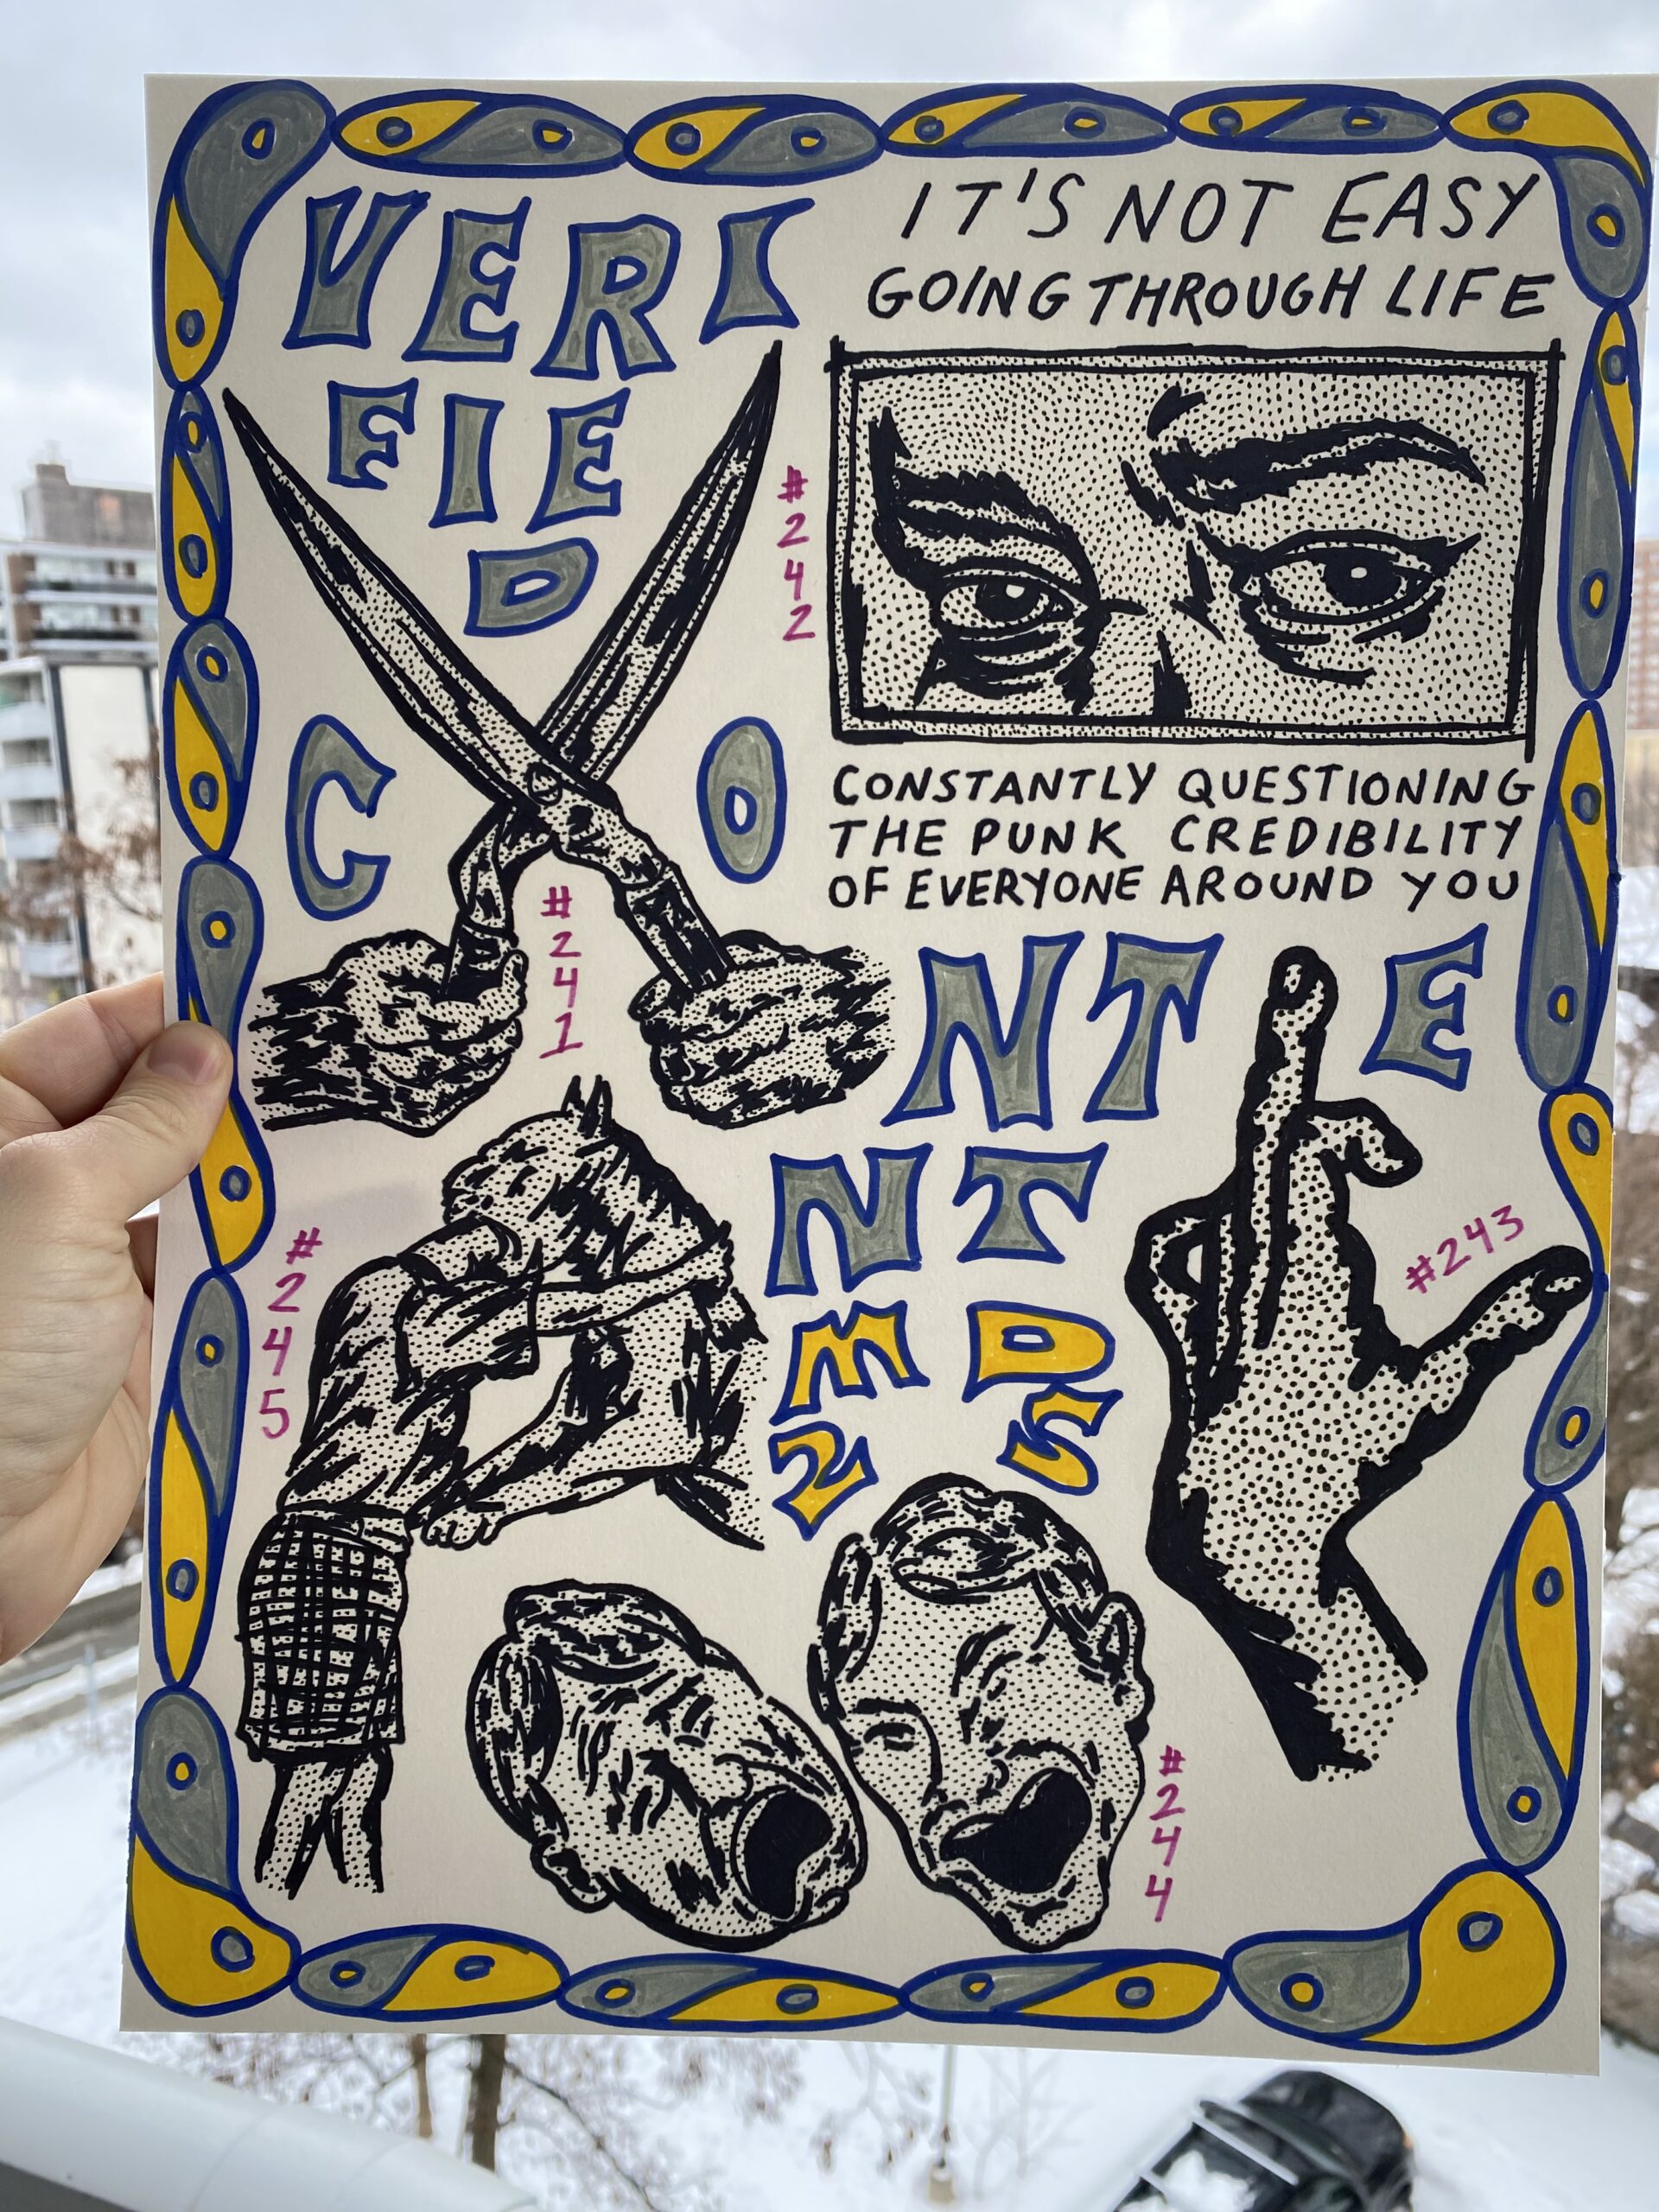 VERI
FIE
D
IT'S NOT EASY
GOING THROUGH LIFE
#242
CONSTANTLY QUESTIONING
THE PUNK CREDIBILITY
OF EVERYONE AROUND YOU
C O
#241
NT E
NT
M D
2 S
#243
#245
#244